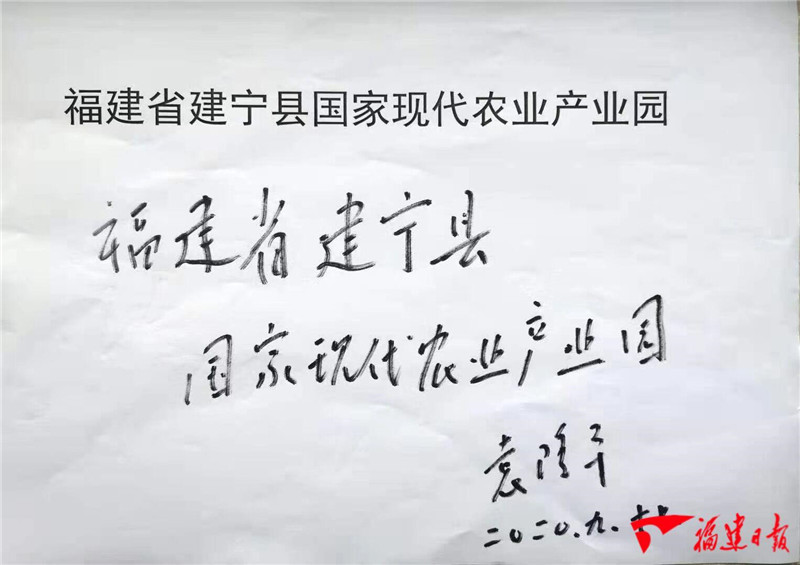 福建省建宁县国家现代农业产业园
福建省建宁县
国家现代农业产业园
袁隆平
二〇二〇.九.
福建日报